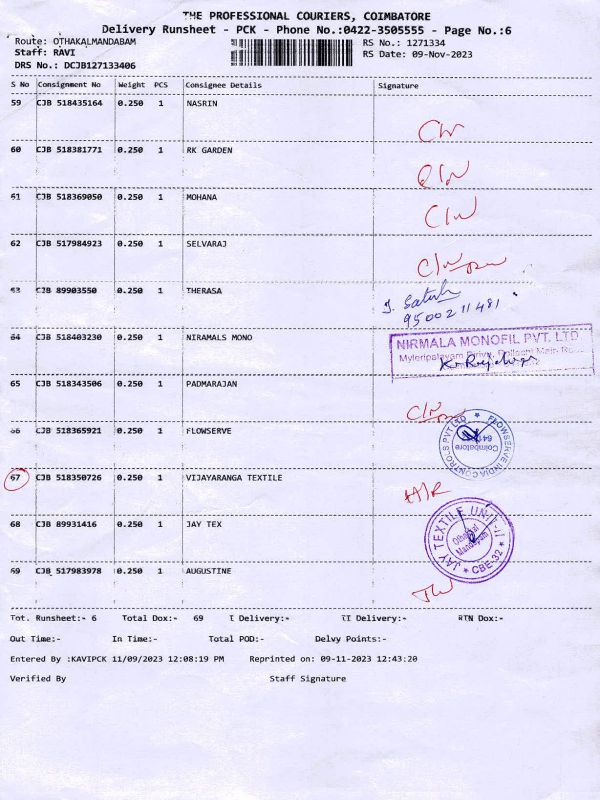 THE PROFESSIONAL COURIERS, COIMBATORE
Delivery Runsheet - PCK - Phone No.:0422-3505555 - Page No.:6
Route: OTHAKALMANDABAM RS No.: 1271334
Staff: RAVI RS Date: 09-Nov-2023
DRS No.: DCJB127133406
S No Consignment No Weight PCS Consignee Details Signature
59 CJB 518435164 0.250 1 NASRIN
60 CJB 518381771 0.250 1 RK GARDEN
61 CJB 518369050 0.250 1 MOHANA
62 CJB 517984923 0.250 1 SELVARAJ
63 CJB 89903550 0.250 1 THERASA
9500211481
64 CJB 518403230 0.250 1 NIRAMALS MONO
NIRMALA MONOFIL PVT. LTD
65 CJB 518343506 0.250 1 PADMARAJAN
66 CJB 518365921 0.250 1 FLOWSERVE
FLOWSERVE INDIA CONTROLS PVT LTD
Coimbatore
67 CJB 518350726 0.250 1 VIJAYARANGA TEXTILE
68 CJB 89931416 0.250 1 JAY TEX
JAY TEXTILE UNIT-II
CBE-32
69 CJB 517983978 0.250 1 AUGUSTINE
Tot. Runsheet:- 6 Total Dox:- 69 I Delivery:- II Delivery:- RTN Dox:-
Out Time:- In Time:- Total POD:- Delvy Points:-
Entered By :KAVIPCK 11/09/2023 12:08:19 PM Reprinted on: 09-11-2023 12:43:20
Verified By Staff Signature